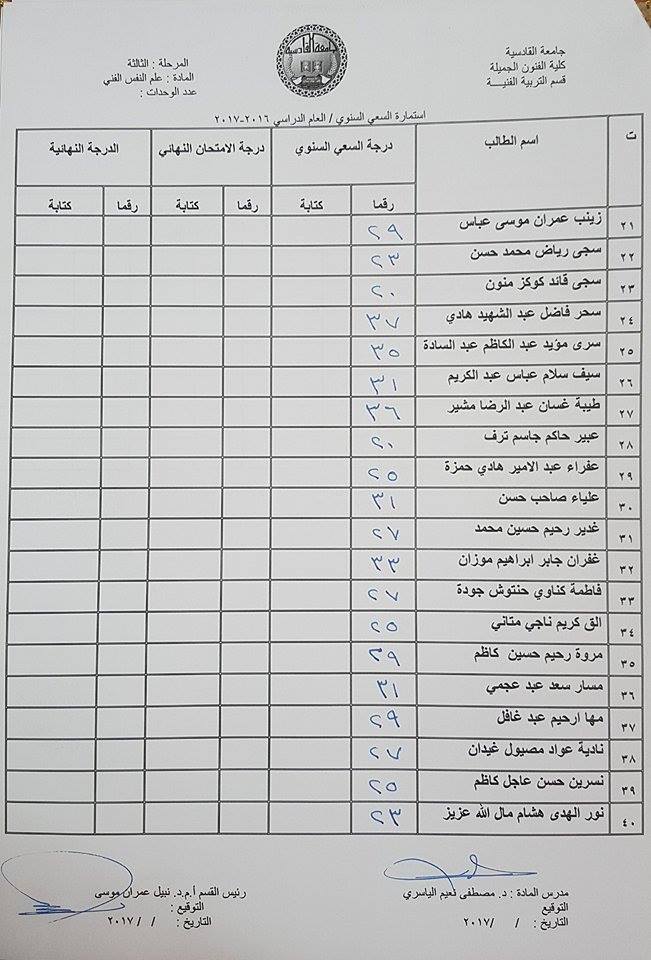 جامعة القادسية
كلية الفنون الجميلة
قسم التربية الفنيـــة
جامعة القادسية
المرحلة : الثالثة
المادة : علم النفس الفني
عدد الوحدات :
استمارة السعي السنوي / العام الدراسي ٢٠١٦-٢٠١٧
ت اسم الطالب درجة السعي السنوي درجة الامتحان النهائي الدرجة النهائية
رقما كتابة رقما كتابة رقما كتابة
٢١ زينب عمران موسى عباس ٢٩
٢٢ سجى رياض محمد حسن ٢٣
٢٣ سجى قائد كوكز منون ٢٠
٢٤ سحر فاضل عبد الشهيد هادي ٣٧
٢٥ سرى مؤيد عبد الكاظم عبد السادة ٣٥
٢٦ سيف سلام عباس عبد الكريم ٣١
٢٧ طيبة غسان عبد الرضا مشير ٣٦
٢٨ عبير حاكم جاسم ترف ٢٠
٢٩ عفراء عبد الامير هادي حمزة ٢٥
٣٠ علياء صاحب حسن ٣١
٣١ غدير رحيم حسين محمد ٢٧
٣٢ غفران جابر ابراهيم موزان ٣٣
٣٣ فاطمة كناوي حنتوش جودة ٢٧
٣٤ الق كريم ناجي متاني ٢٥
٣٥ مروة رحيم حسين كاظم ٣٩
٣٦ مسار سعد عبد عجمي ٣١
٣٧ مها ارحيم عبد غافل ٢٩
٣٨ نادية عواد مصيول غيدان ٢٧
٣٩ نسرين حسن عاجل كاظم ٢٥
٤٠ نور الهدى هشام مال الله عزيز ٢٣
مدرس المادة : د. مصطفى نعيم الياسري
التوقيع
التاريخ : / / ٢٠١٧
رئيس القسم أ.م.د. نبيل عمران موسى
التوقيع :
التاريخ : / / ٢٠١٧